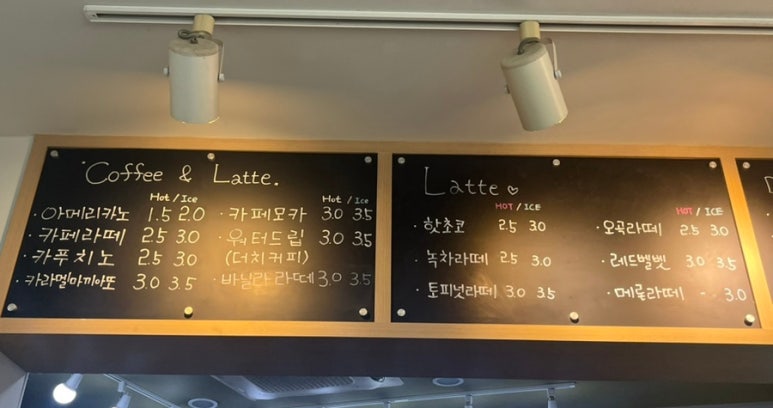 Coffee & Latte.
Hot / Ice
· 아메리카노 1.5 2.0
· 카페라떼 2.5 3.0
· 카푸치노 2.5 3.0
카라멜마끼아또 3.0 3.5
Hot / Ice
· 카페모카 3.0 3.5
· 워터드립 3.0 3.5
(더치커피)
· 바닐라라떼 3.0 3.5
Latte ♡
HOT / ICE
· 핫초코 2.5 3.0
· 녹차라떼 2.5 3.0
· 토피넛라떼 3.0 3.5
HOT / ICE
· 오곡라떼 2.5 3.0
· 레드벨벳 3.0 3.5
· 메로나라떼 - 3.0